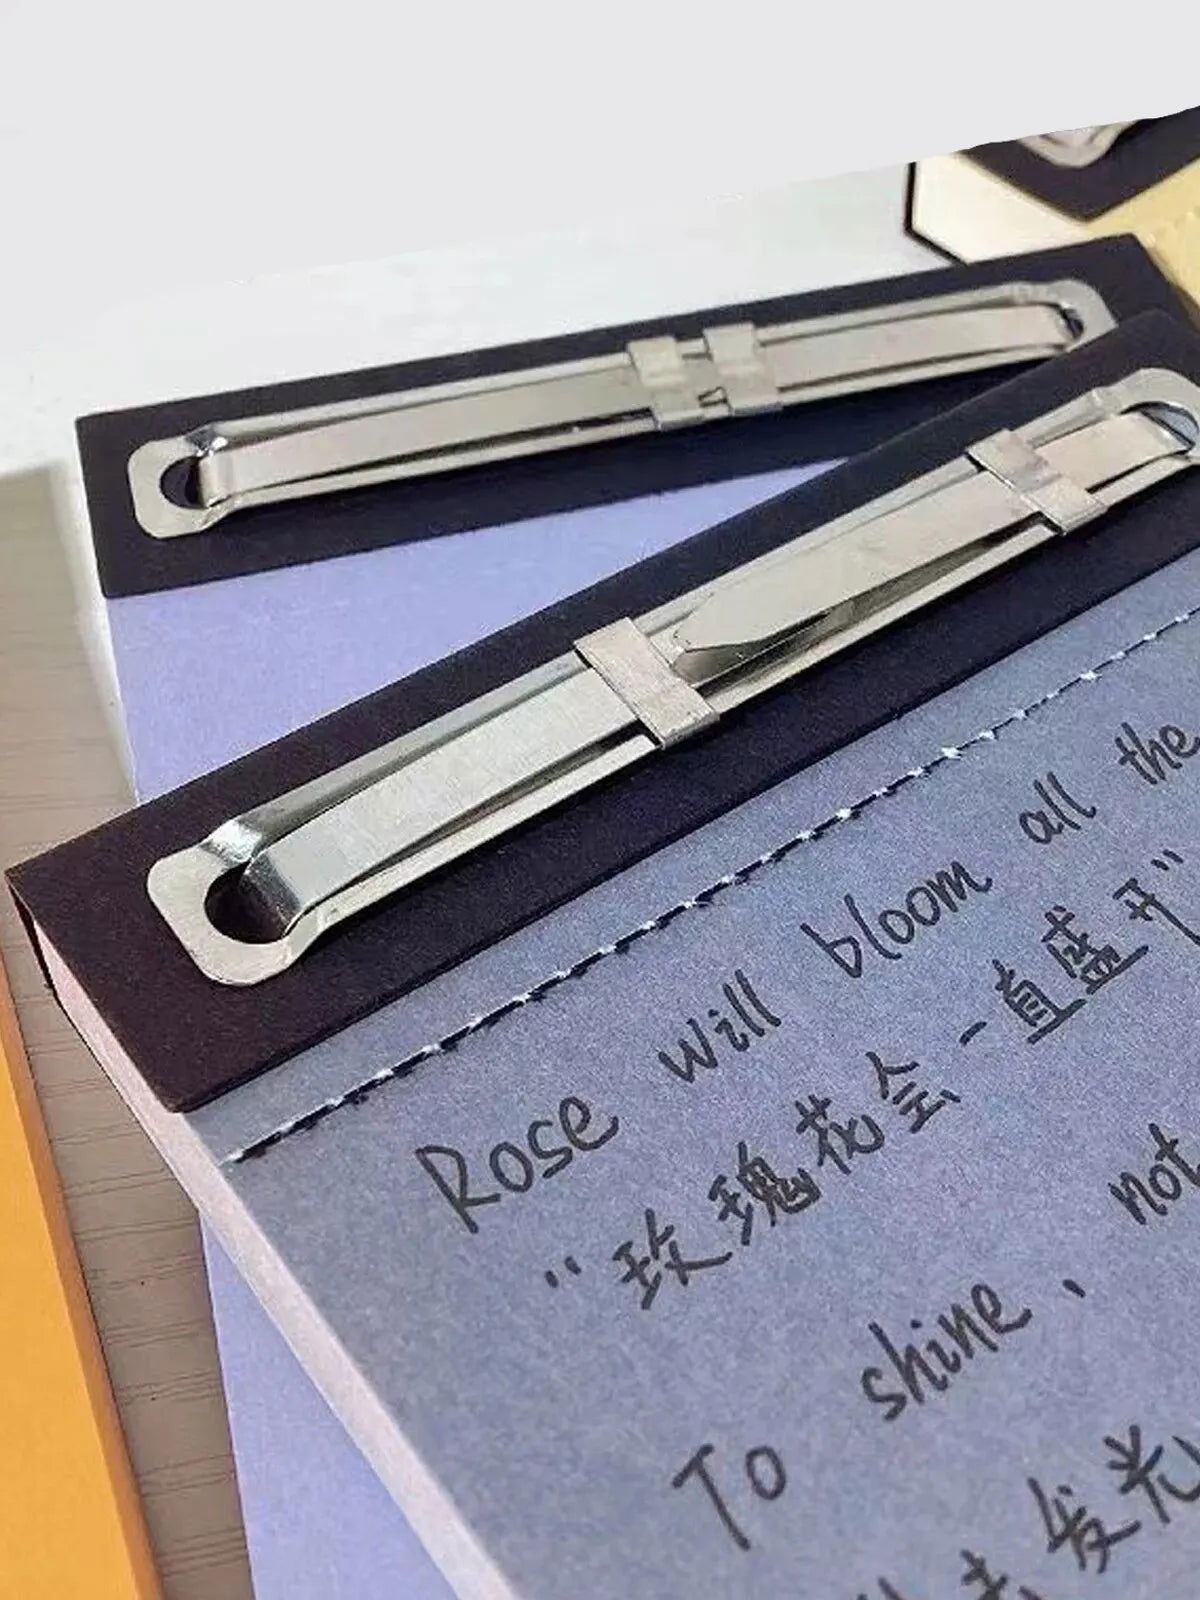 Rose will bloom all the
“玫瑰花会一直盛开”
To shine、 not
去发光